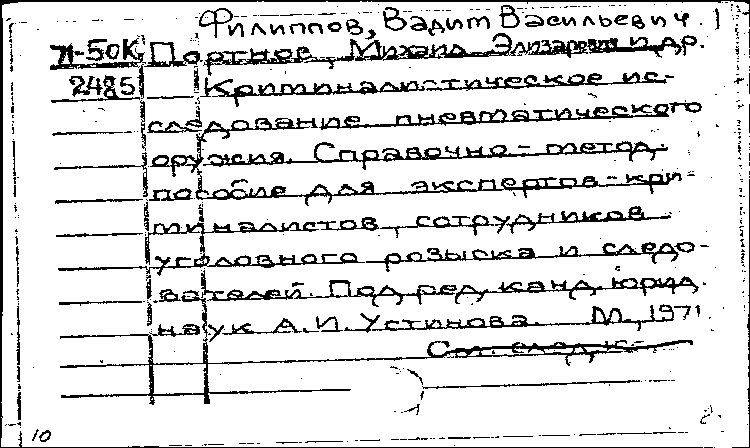 Филиппов, Вадим Васильевич.
Портнов, Михаил Элизарович и др.
2485 Криминалистическое ис-
следование пневматического
оружия. Справочно-метод.
пособие для экспертов-кри-
миналистов, сотрудников
уголовного розыска и следо-
вателей. Под ред. канд. юрид.
наук А.И. Устинова. М., 1971.
См. след. к.
10